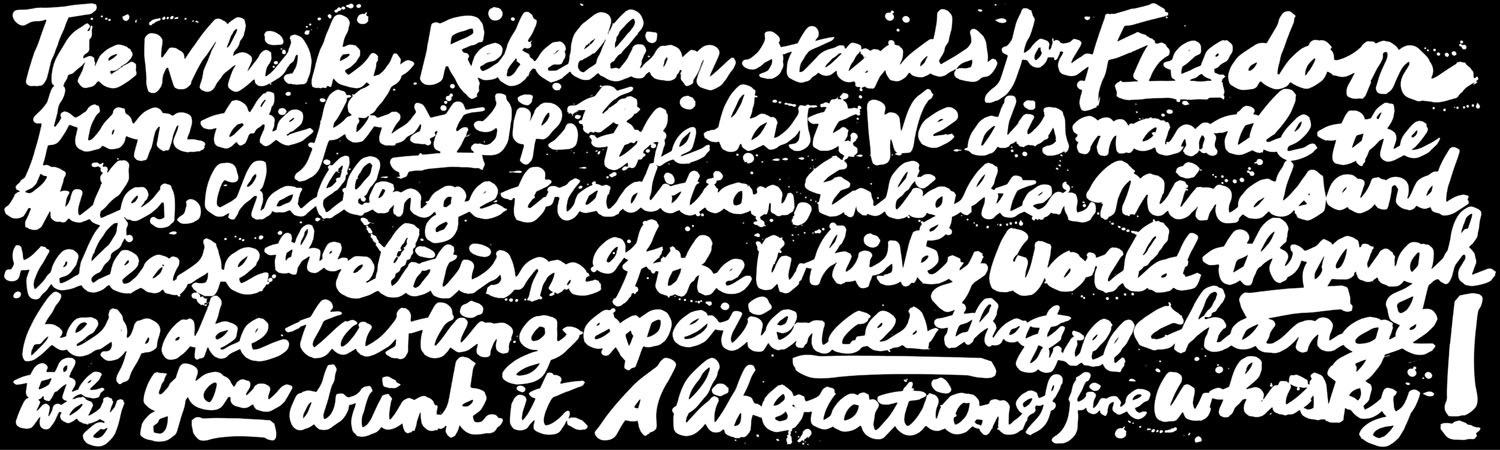 The Whisky Rebellion stands for Freedom
from the first sip, to the last. We dismantle the
rules, Challenge tradition, Enlighten minds and
release the elitism of the Whisky World through
bespoke tasting experiences that will change
the way you drink it. A liberation of fine whisky!